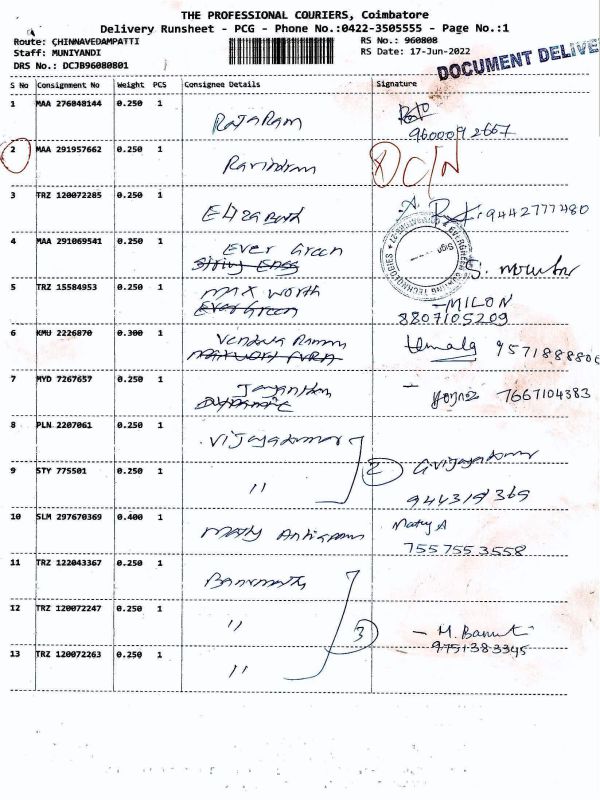 THE PROFESSIONAL COURIERS, Coimbatore
Delivery Runsheet - PCG - Phone No.:0422-3505555 - Page No.:1
Route: CHINNAVEDAMPATTI
Staff: MUNIYANDI
DRS No.: DCJB96080801
RS No.: 960808
RS Date: 17-Jun-2022
DOCUMENT DELIVE
S No Consignment No Weight PCS Consignee Details Signature
1 MAA 276048144 0.250 1 RAJARAM
9600092667
2 MAA 291957662 0.250 1 Ravindran D C/N
3 TRZ 120072285 0.250 1 Elizabeth A. 9442777480
4 MAA 291069541 0.250 1 Ever Green
5 TRZ 15584953 0.250 1 max worth
Ever Green
MILON
8807105209
6 KMU 2226870 0.300 1
7 MYD 7267657 0.250 1 Jayanthi 7667104383
8 PLN 2207061 0.250 1 Vijayakumar
9 STY 775501 0.250 1 " 2 G.Vijayakumar
10 SLM 297670369 0.400 1 Mary Mary A
7557553558
11 TRZ 122043367 0.250 1 Banumathy
12 TRZ 120072247 0.250 1 " 3 - M. Banu
9751383345
13 TRZ 120072263 0.250 1 "